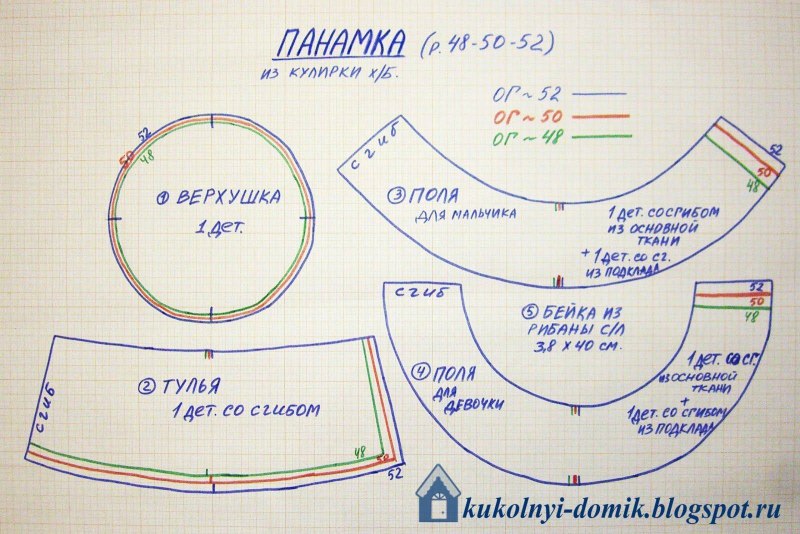 ПАНАМКА (р. 48-50-52)
ИЗ КУЛИРКИ Х/Б.
ОГ ~ 52
ОГ ~ 50
ОГ ~ 48
52
50
48
① ВЕРХУШКА
1 ДЕТ.
СГИБ
③ ПОЛЯ
ДЛЯ МАЛЬЧИКА
1 ДЕТ. СО СГИБОМ
ИЗ ОСНОВНОЙ
ТКАНИ
+ 1 ДЕТ. СО СГ.
ИЗ ПОДКЛАДА
52
50
48
СГИБ
② ТУЛЬЯ
1 ДЕТ. СО СГИБОМ
48
50
52
СГИБ
④ ПОЛЯ
ДЛЯ
ДЕВОЧКИ
⑤ БЕЙКА ИЗ
РИБАНЫ С/Л
3,8 Х 40 СМ.
52
50
48
1 ДЕТ. СО СГ.
ИЗ ОСНОВНОЙ
ТКАНИ
+
1 ДЕТ. СО СГИБОМ
ИЗ ПОДКЛАДА
kukolnyi-domik.blogspot.ru